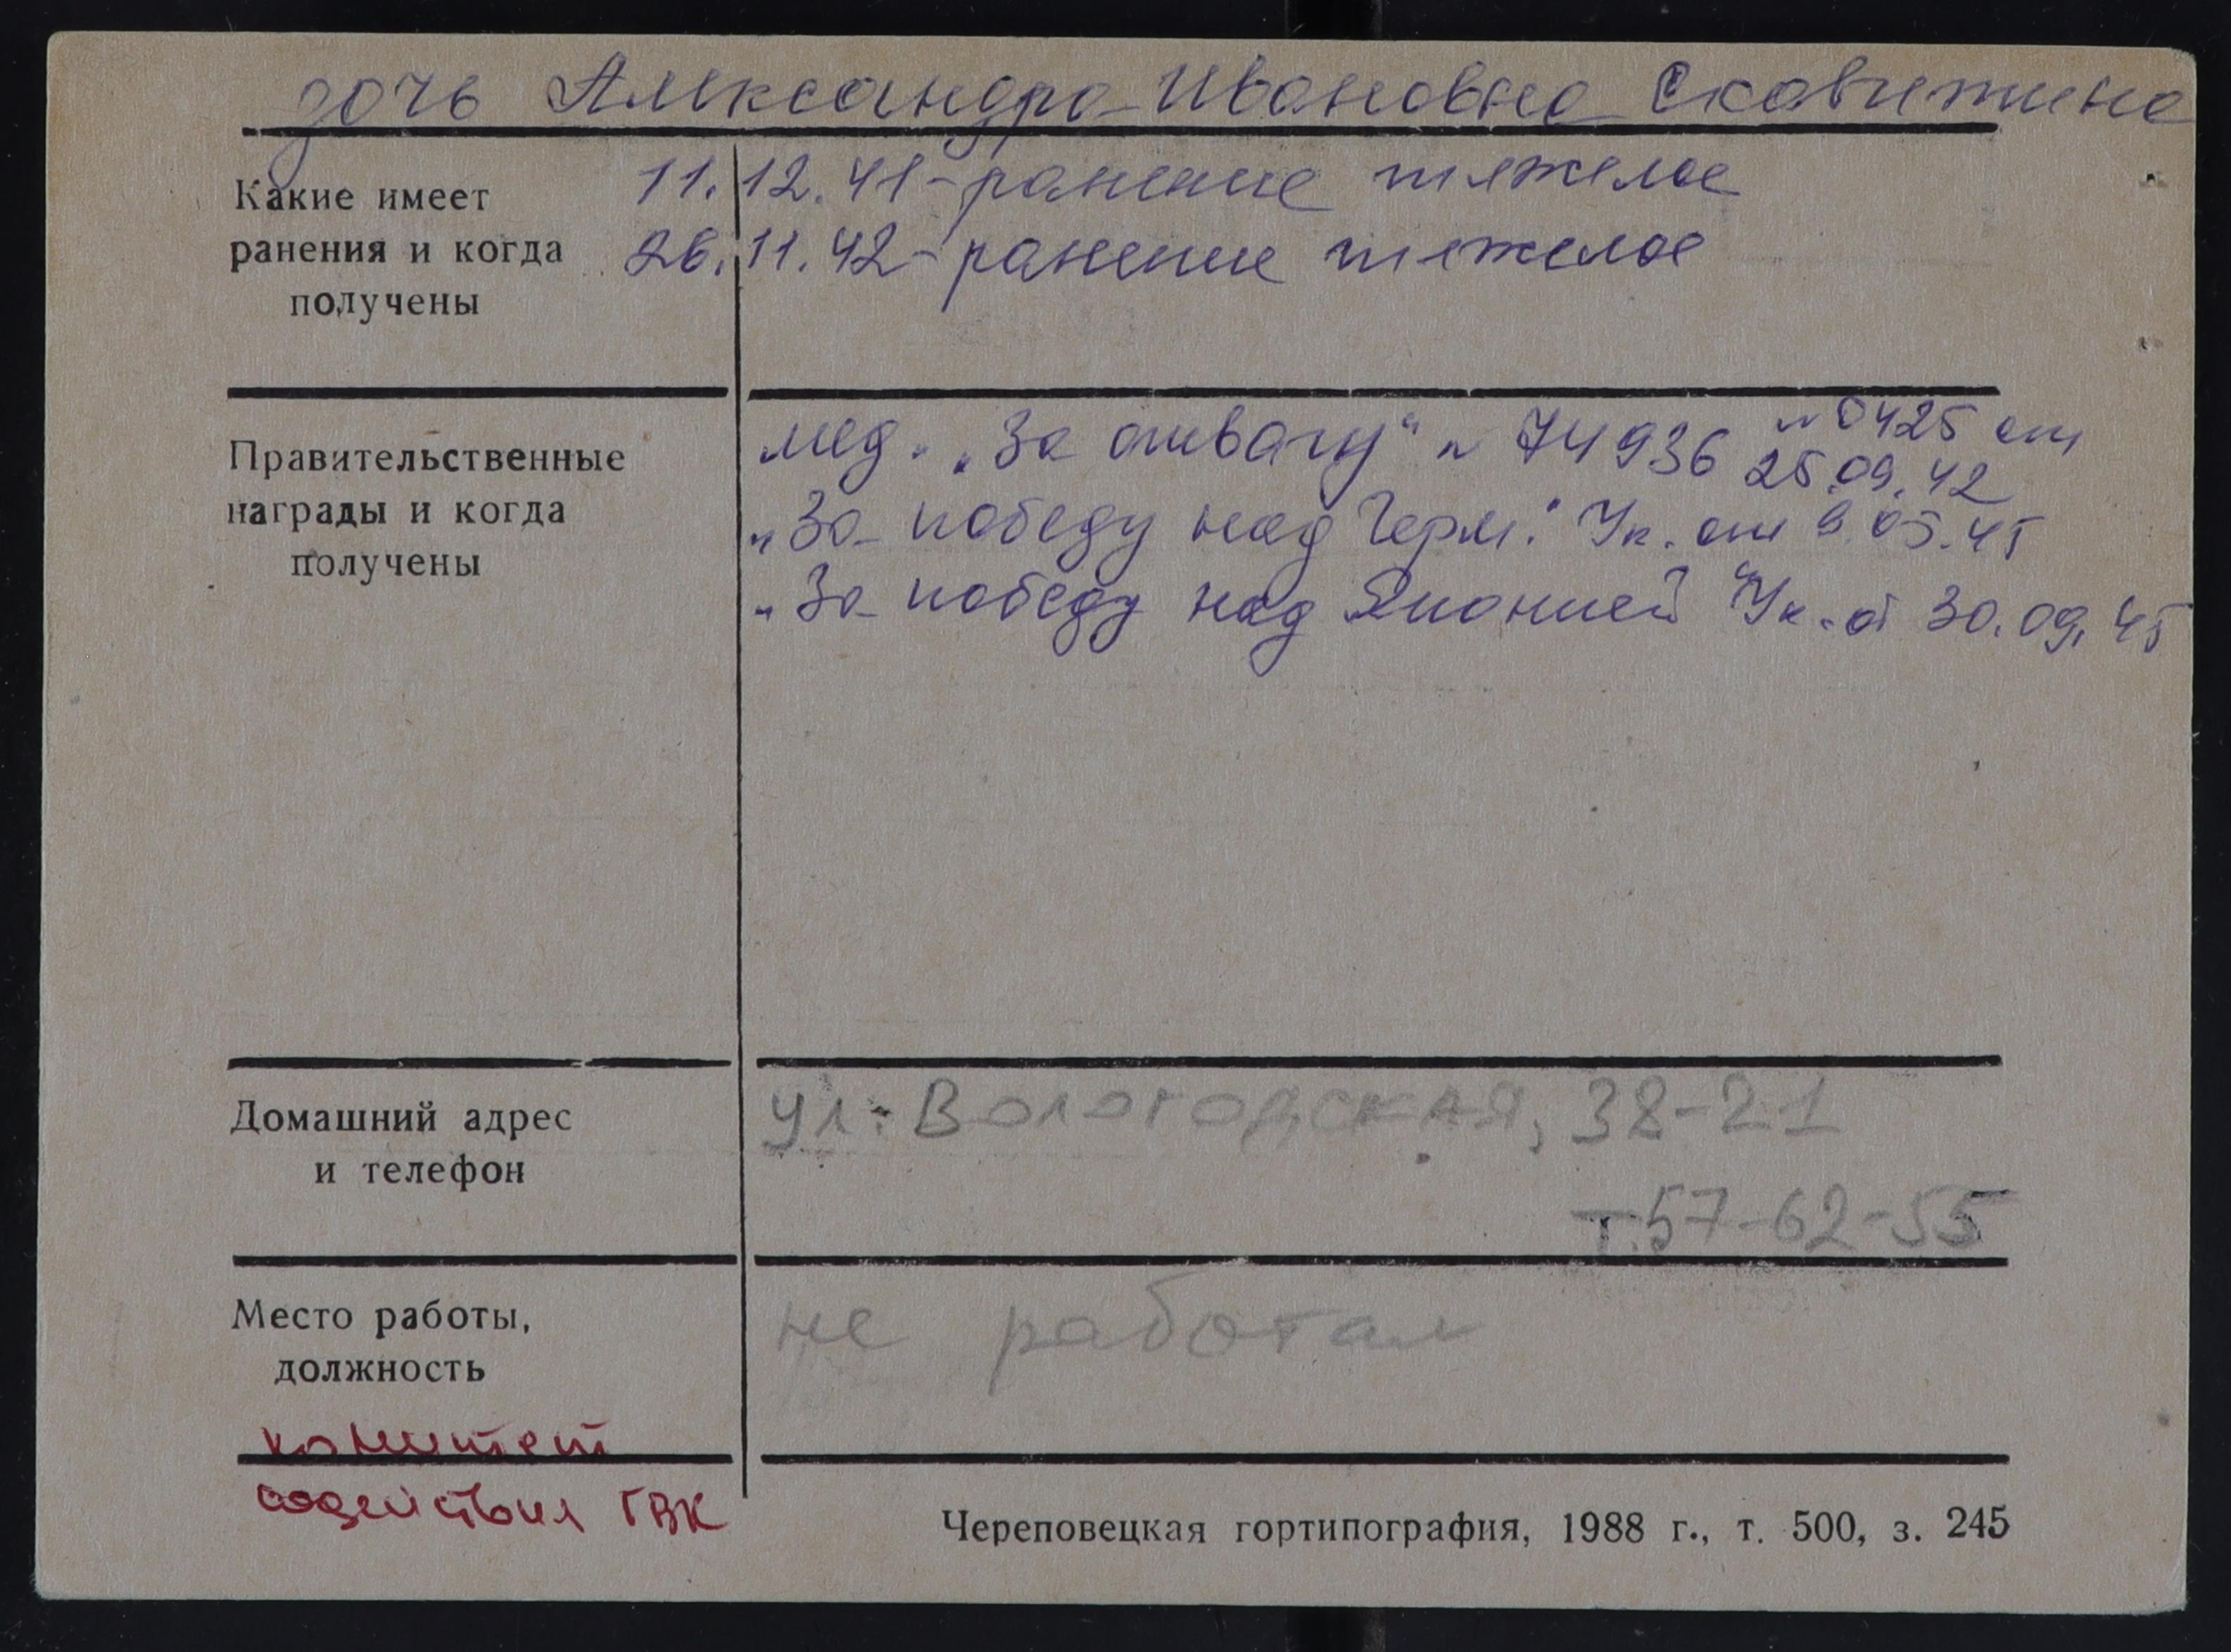 дочь Александра Ивановна Сковитина
Какие имеет
ранения и когда
получены
11.12.41-ранение тяжелое
26.11.42-ранение тяжелое
Правительственные
награды и когда
получены
мед. „За отвагу“ н 74936 н 0425 от
25.09.42
„За победу над Герм." Ук. от 9.05.45
„За победу над Японией" Ук. от 30.09.45
Домашний адрес
и телефон
ул. Вологодская, 38-21
т.57-62-55
Место работы,
должность
не работал
комитет
содействия ГВК
Череповецкая гортипография, 1988 г., т. 500, з. 245